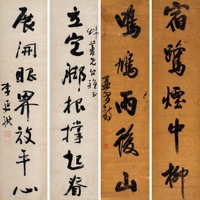 宿鷺煙中柳
鳴鳩雨後山
立定腳根撐起脊
展開眼界放平心